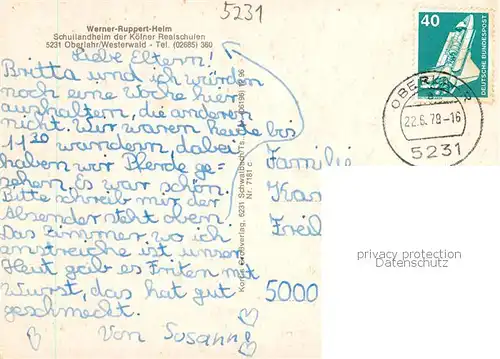 5231
Werner-Ruppert-Heim
Schullandheim der Kölner Realschulen
5231 Oberlahr/Westerwald - Tel. (02685) 360
Liebe Eltern!
Britta und ich würden
noch eine Woche hier
aushalten, die anderen
nicht. Wir waren heute bis
11 30 wandern, dabei
haben wir Pferde ge-
sehen. Es war schön.
Bitte schreib mir der
Absender steht oben.
Das Zimmer wo ich
anstreiche ist unser.
Heut gab es Friten mit
Wurst, das hat gut
geschmeckt.
Von Susann
Nr. 7181 c
40
DEUTSCHE BUNDESPOST
OBERLAHR
22.6.78-16
5231
Familie
Kas
Freil
5000
privacy protection
Datenschutz